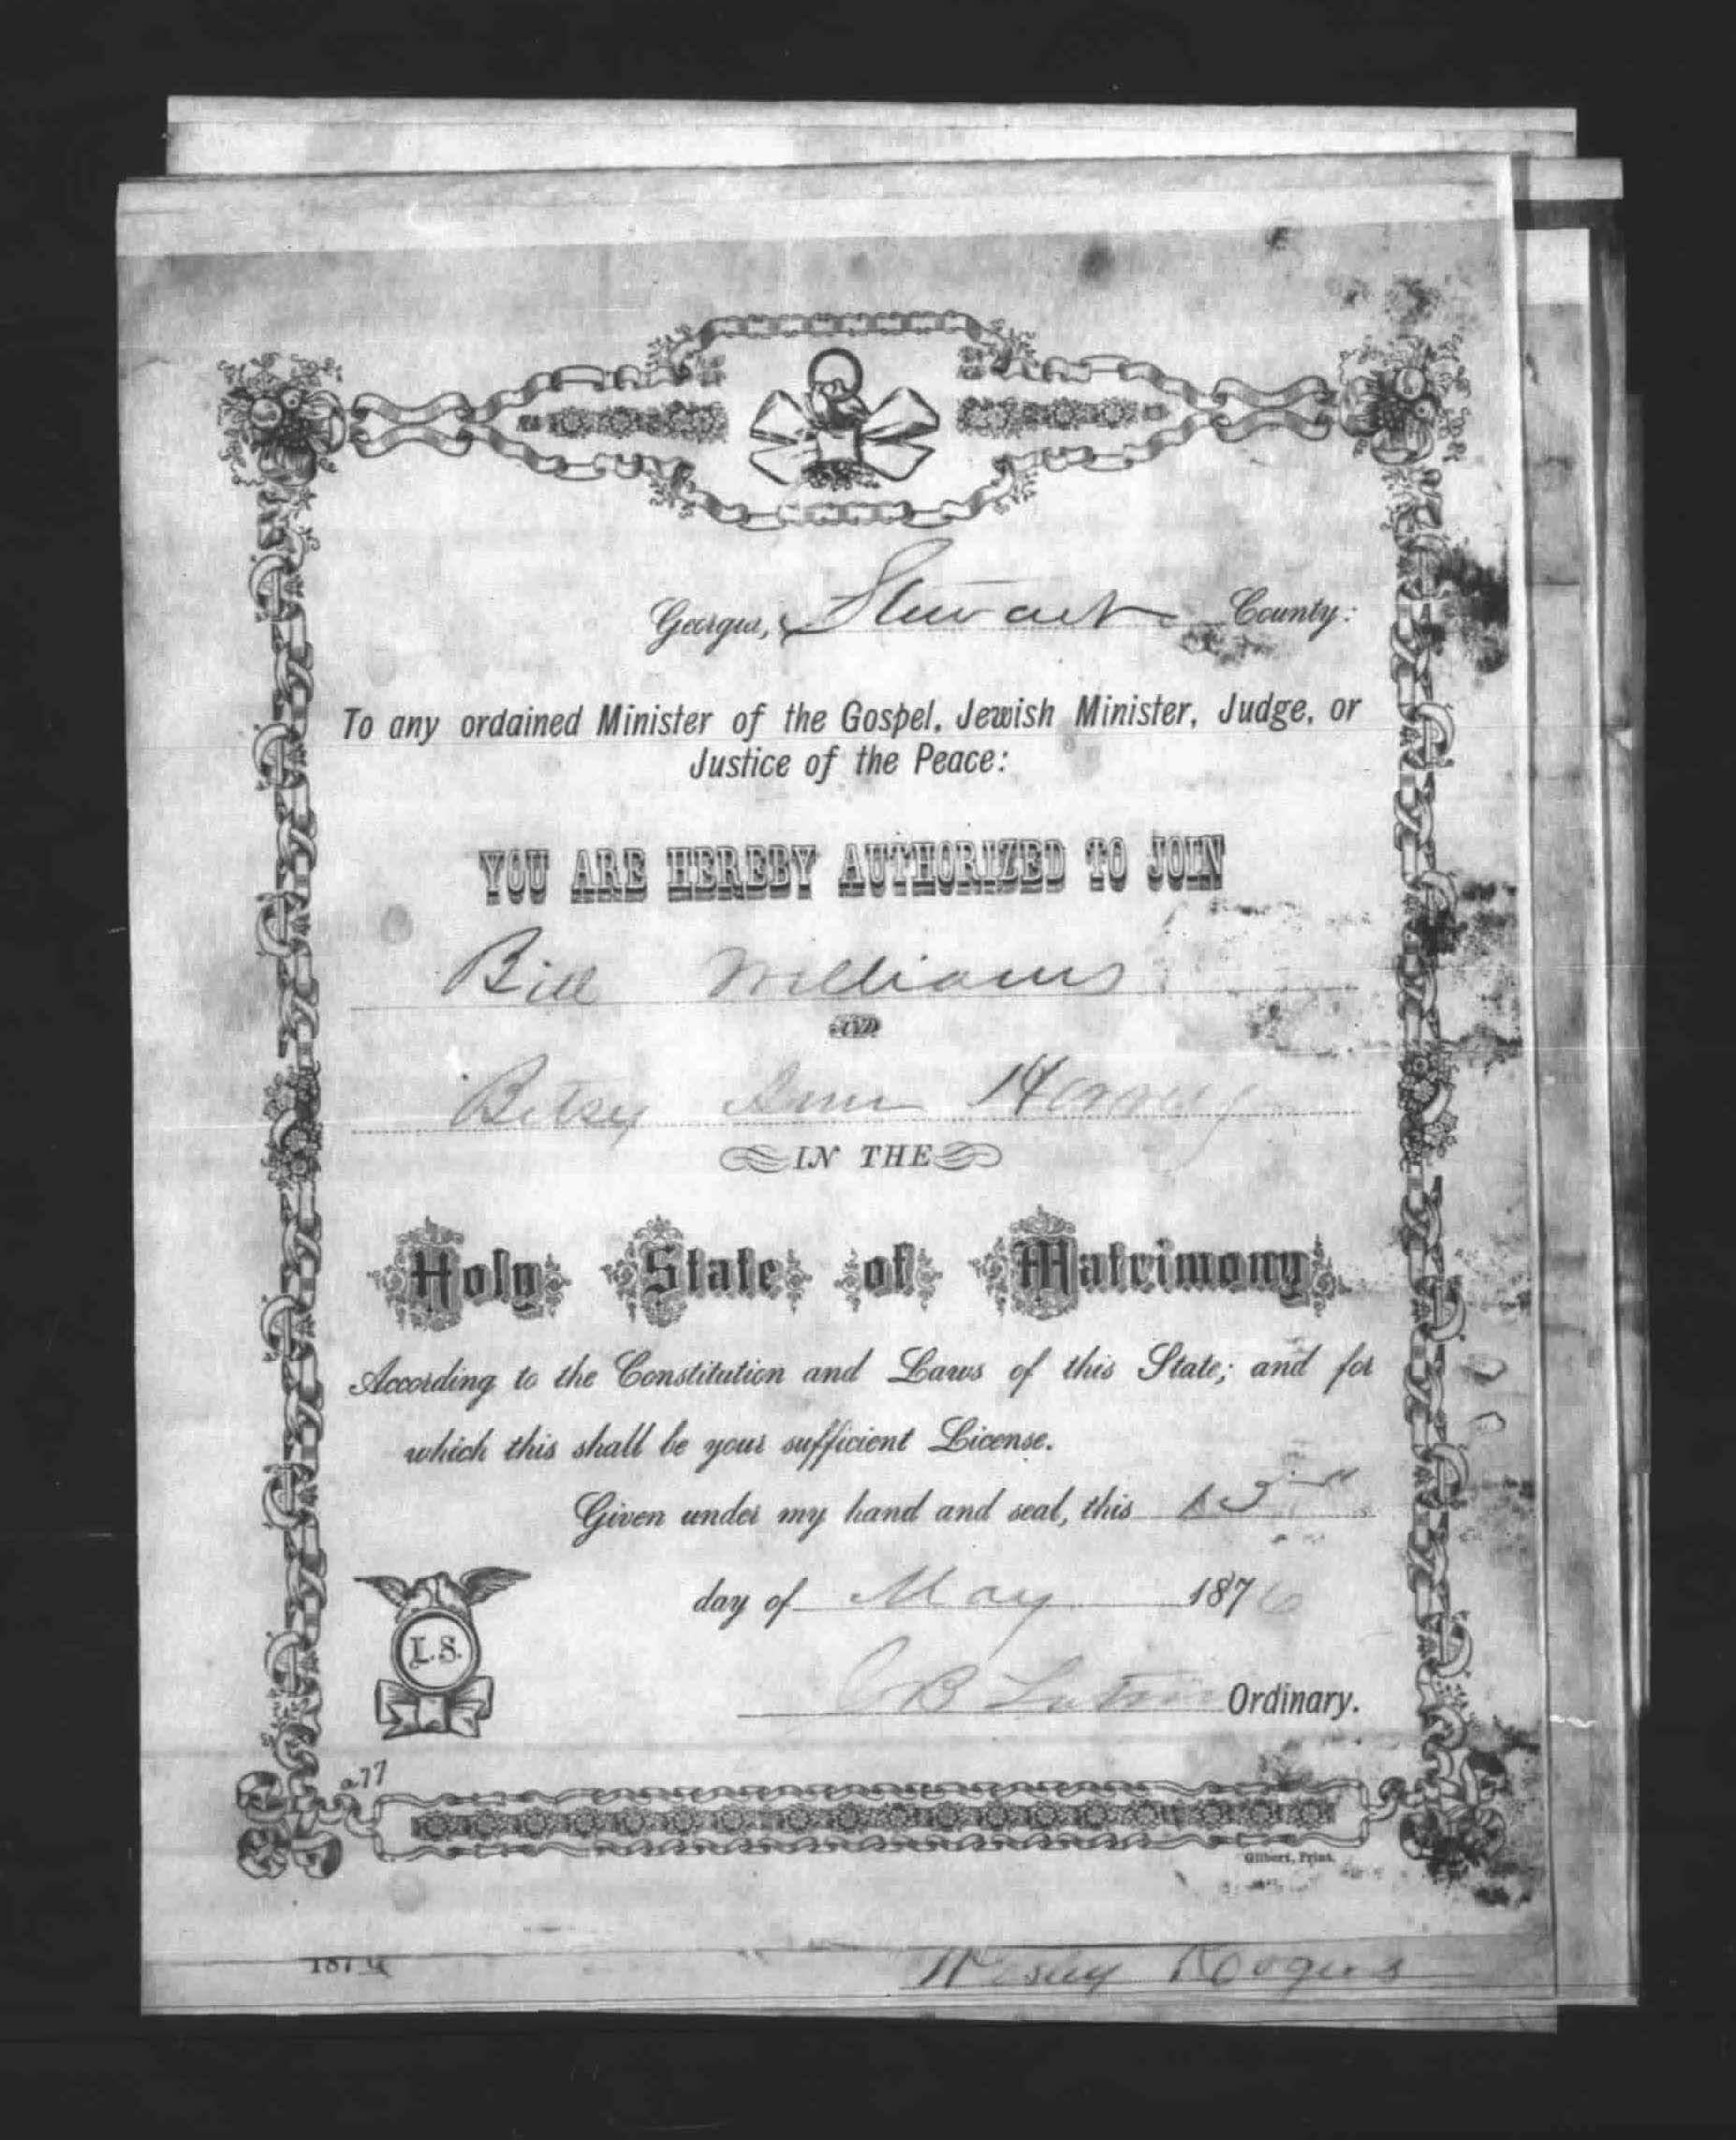 Georgia, Stewart County:
To any ordained Minister of the Gospel, Jewish Minister, Judge, or
Justice of the Peace:
YOU ARE HEREBY AUTHORIZED TO JOIN
Bill Williams
AND
Betsy Ann Harvey
IN THE
Holy State of Matrimony
According to the Constitution and Laws of this State; and for
which this shall be your sufficient License.
Given under my hand and seal, this 13
day of May 1876
L.S.
C B Ordinary.
277
Gilbert, Print.
187
Wesley Rogers